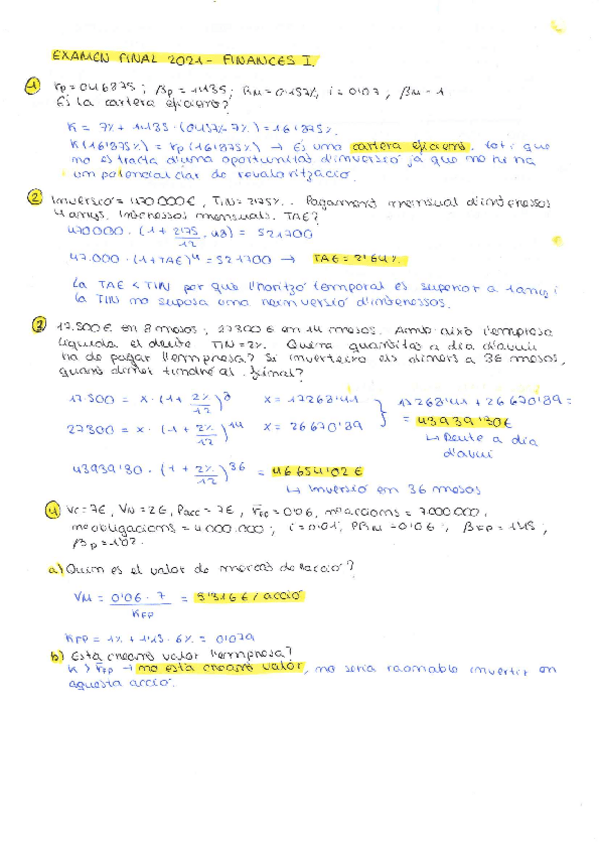 EXAMEN FINAL 2021 - FINANCES I.
1 rp = 0'16875 ; βp = 1'135 ; RM = 0'157%, i = 0'07 , βM = 1.
És la cartera eficient?
K = 7% + 1'135 · (0'157% - 7%) = 16'875%.
K (16'875%) = rp (16'875%) → És una cartera eficient, tot i que
no es tracta d'una oportunitat d'inversió ja que no hi ha
un potencial clar de revalorització.
2 Inversió = 470.000€, TIN = 2'75%. Pagament mensual d'interessos
4 anys. Interessos mensuals. TAE?
470000 · (1 + 2'75/12 · 48) = 521700
47.000 · (1+TAE)^4 = 521700 → TAE = 2'64%.
La TAE < TIN perque l'horitzó temporal es superior a 1 any i
la TIN no suposa una reinversió d'interessos.
3 17.500€ en 8 mesos ; 27300€ en 14 mesos. Amb això l'empresa
liquida el deute TIN = 2%. Quina quantitat a dia d'avui
ha de pagar l'empresa? Si inverteixo els diners a 36 mesos,
quants diners tindré al final?
17.500 = x · (1 + 2%/12)^8 x = 17268'41
27300 = x · (1 + 2%/12)^14 x = 26670'89
17268'41 + 26670'89 =
= 43939'30€
↳ Deute a dia
d'avui
43939'30 · (1 + 2%/12)^36 = 46654'02€
↳ Inversió en 36 mesos
4 Vc = 7€, VN = 2€, Pacc = 7€, rFP = 0'06, nº accions = 7.000.000,
nº obligacions = 4.000.000 ; i = 0'01, PRM = 0'06 ; βFP = 1'15 ;
βD = 1'02.
a) Quin es el valor de mercat de l'acció?
VM = 0'06 · 7 / KFP = 5'316€ / acció
KFP = 1% + 1'15 · 6% = 0'079
b) Està creant valor l'empresa?
K > rFP → no està creant valor, no seria raonable invertir en
aquesta acció.